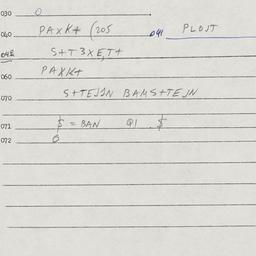 030 0
040 PAXK+ (205 041 PLOJT
045 S+T3XE,T+
060 PAXK+
070 S+TEJ1N BAMS+TEJN
071 $ = BAN Q1 . $
072 0